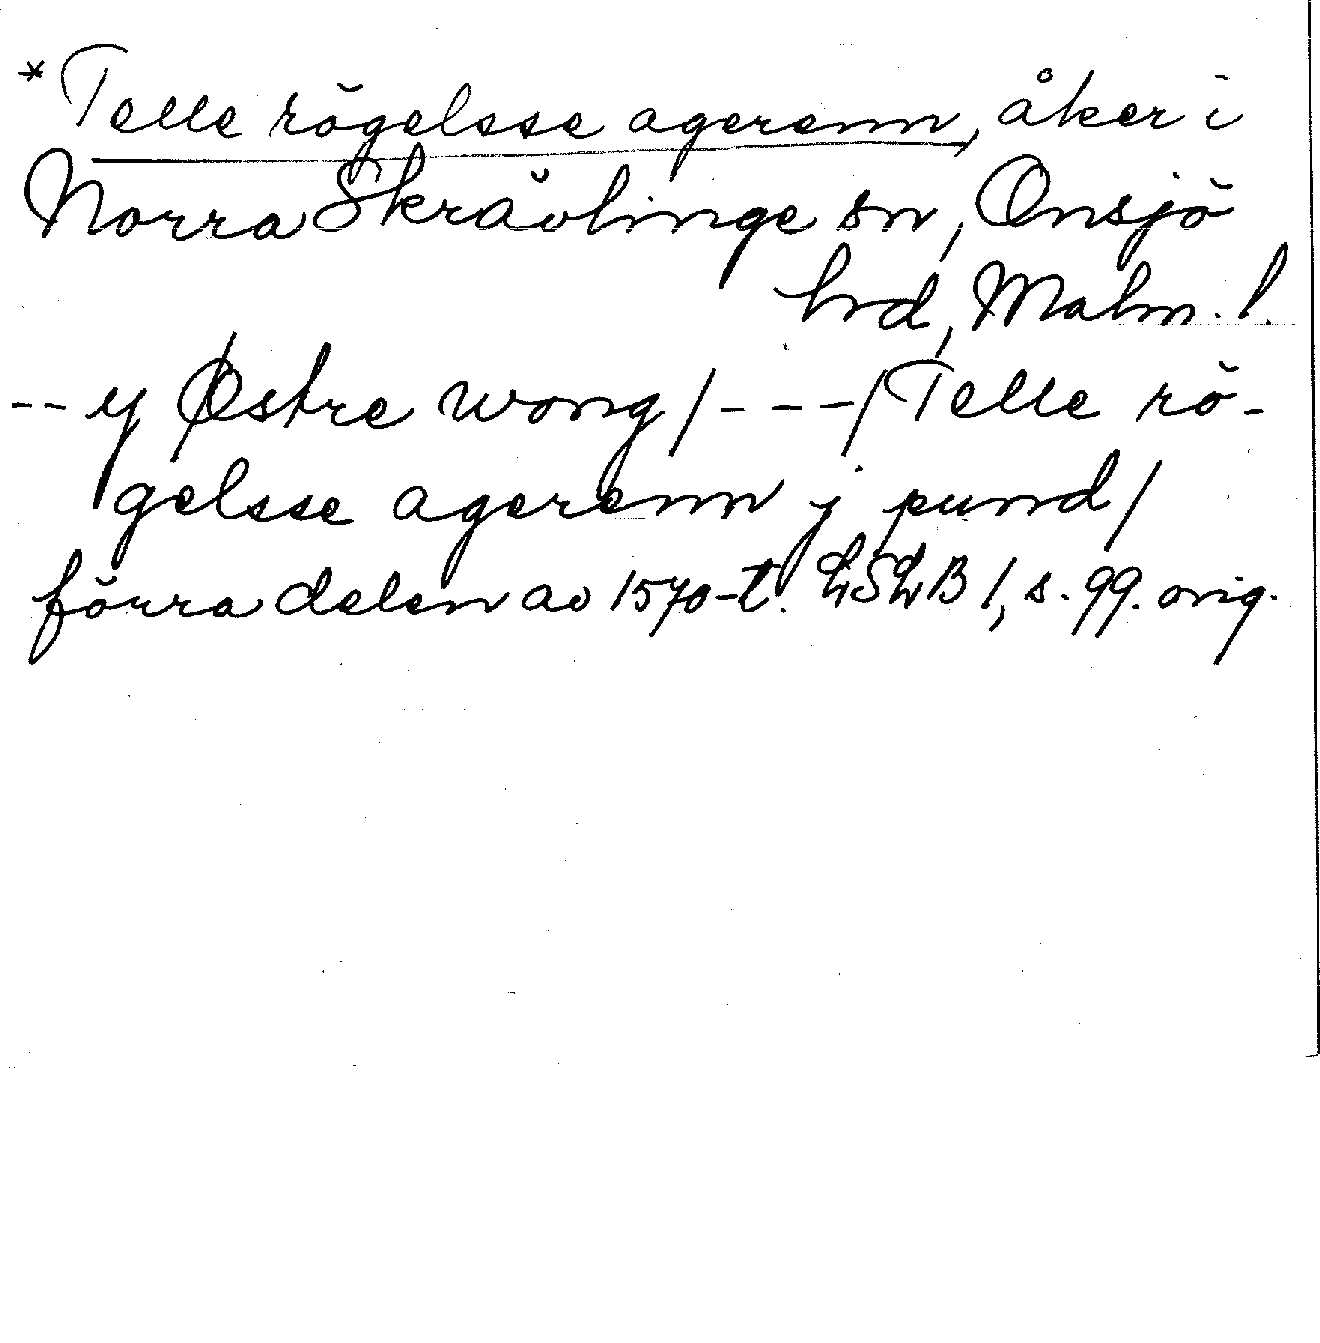 *Telle rögelsse agerenn, åker i
Norra Skrävlinge sn, Onsjö
hrd, Malm. l.
-- y Østre wong/---/Telle rö-
gelsse agerenn j pund/
förra delen av 1570-t. LSLB 1, s. 99. orig.